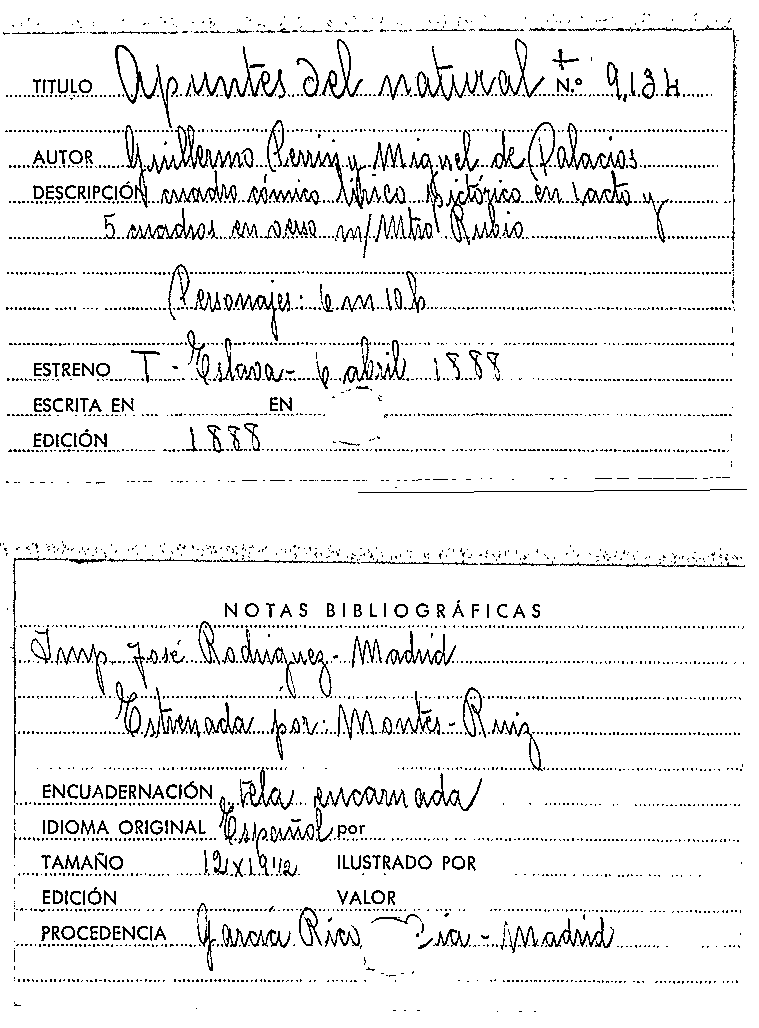 TITULO Apuntes del natural + N.º 9,134
AUTOR Guillermo Perrin y Miguel de Palacios
DESCRIPCIÓN cuadro cómico lírico pictórico en 1 acto y
5 cuadros en verso m/ Mtro Rubio
Personajes: 6 m 10 h
ESTRENO T - Eslava - 6 abril 1888
ESCRITA EN EN
EDICIÓN 1888
NOTAS BIBLIOGRÁFICAS
Imp José Rodriguez - Madrid
Estrenada por: Montes - Ruiz
ENCUADERNACIÓN tela encarnada
IDIOMA ORIGINAL Español por
TAMAÑO 12x19 1/2 ILUSTRADO POR
EDICIÓN VALOR
PROCEDENCIA García Rico - Madrid